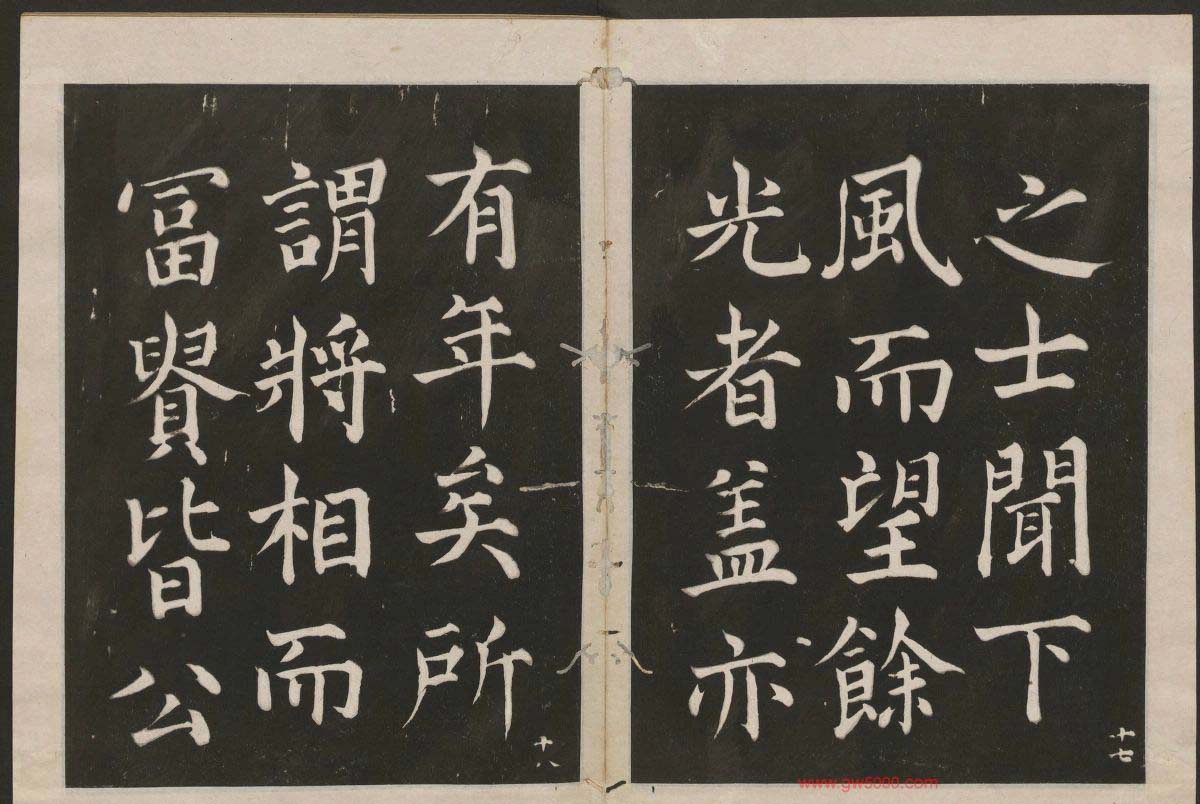 之士聞下
風而望餘
光者盖亦
十七
有年矣所
謂將相而
冨貴皆公
十八
www.gw5000.com